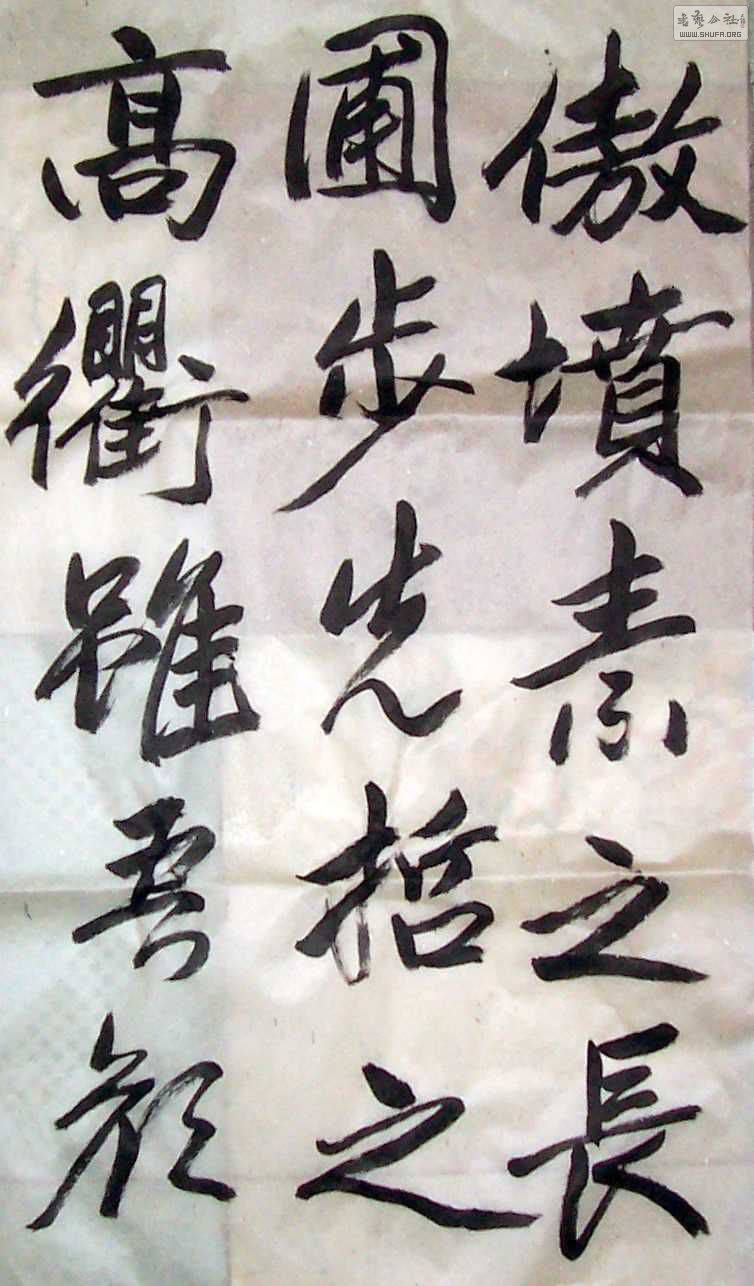 傲墳素之長
圃步先哲之
高衢雖吾顔
书艺公社
WWW.SHUFA.ORG